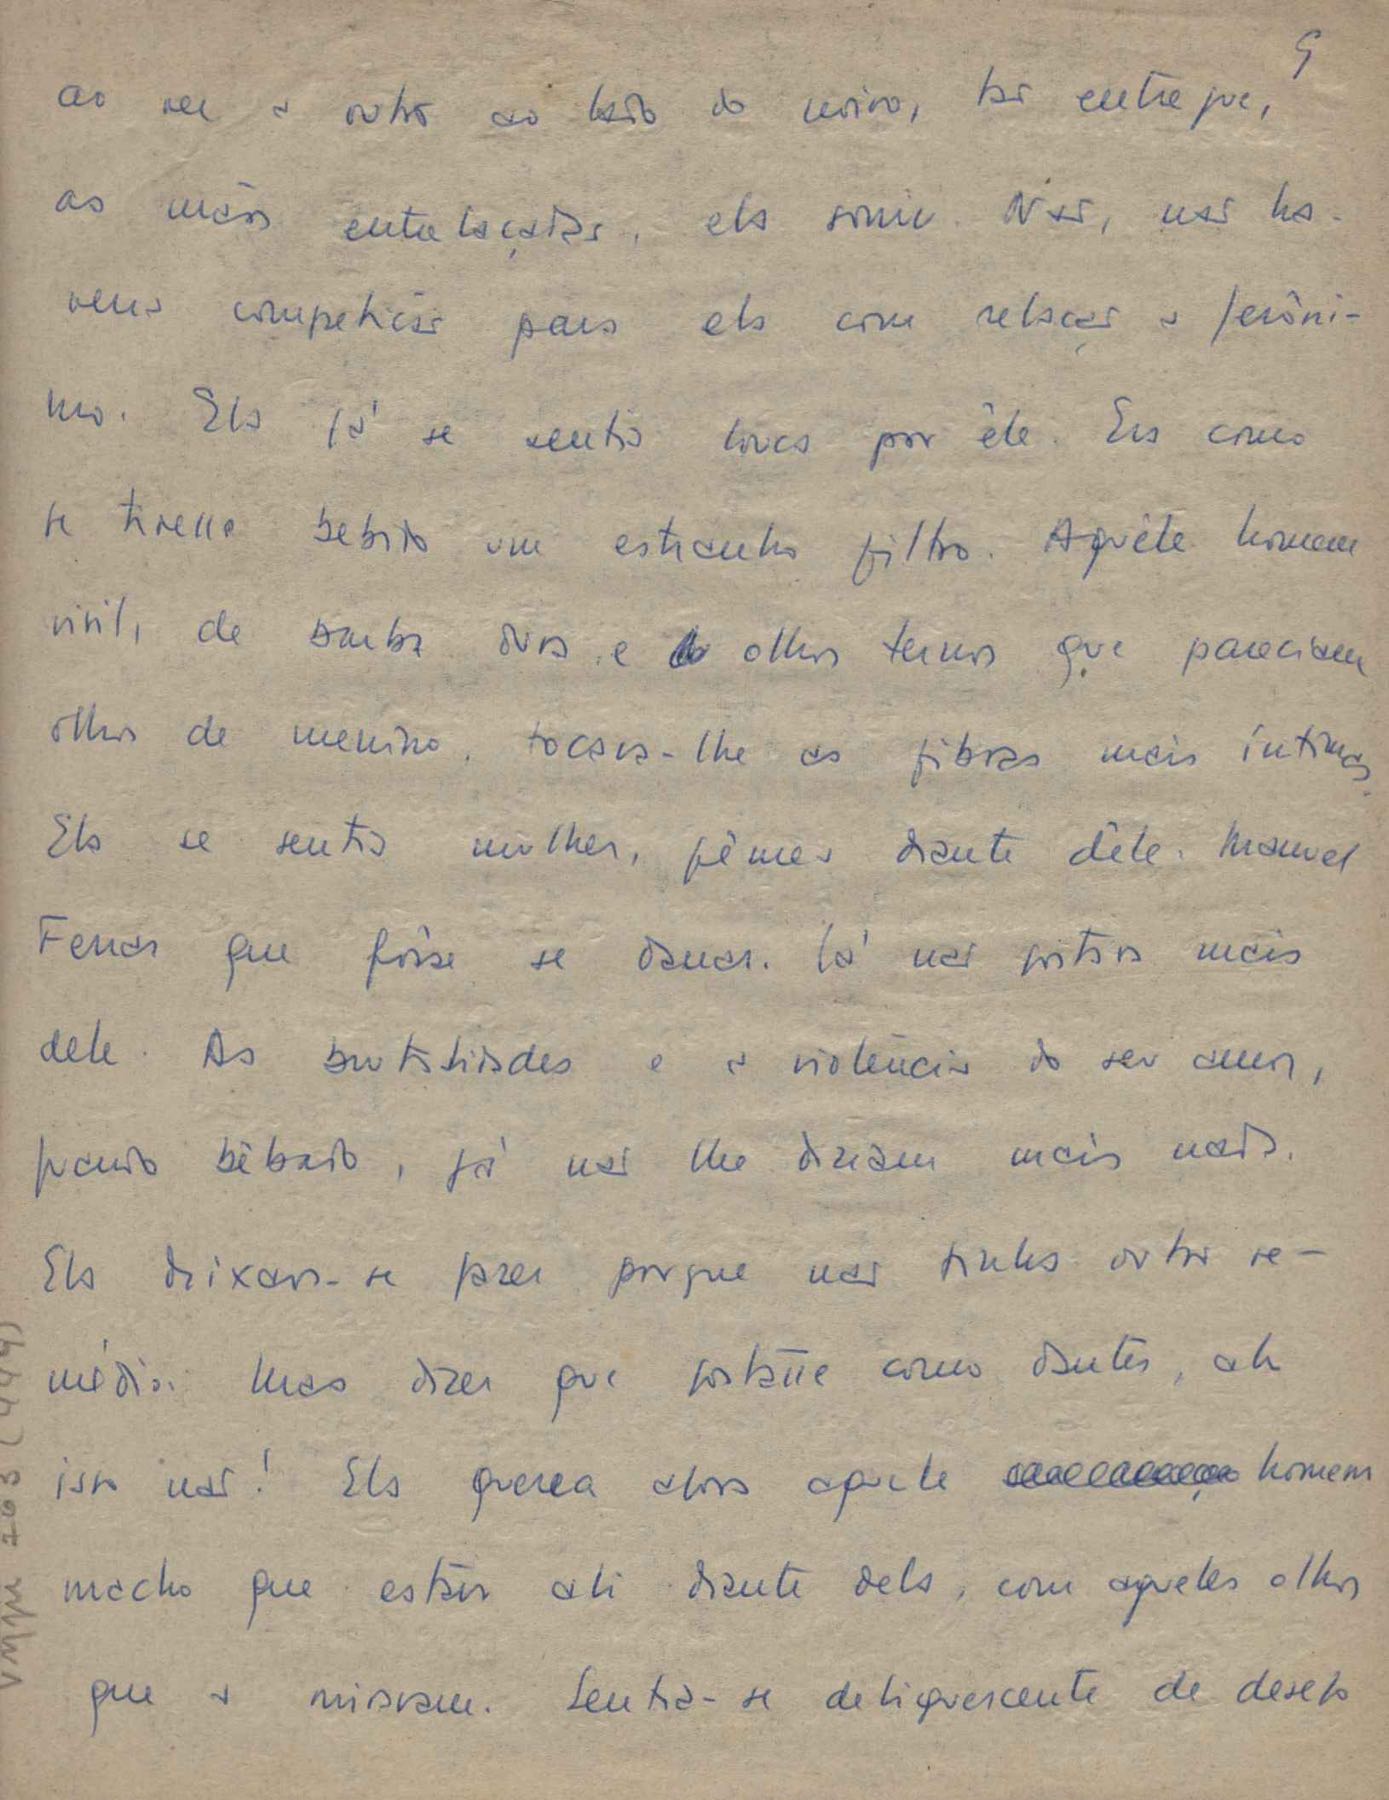 9
ao ver a outra ao lado do noivo, tão entregue,
as mãos entrelaçadas, ela sorriu. Não, não ha-
veria competição para ela com relação a Jerôni-
mo. Ela já se sentia louca por êle. Era como
se tivesse bebido um estranho filtro. Aquêle homem
viril, de barba dura e olhos ternos que pareciam
olhos de menino, tocava-lhe as fibras mais íntimas.
Ela se sentia mulher, fêmea diante dêle. Manuel
Ferraz que fôsse se danar. Já não gostava mais
dele. As brutalidades e a violência do seu amor,
quando bêbado, já não lhe diziam mais nada.
Ela deixava-se fazer porque não tinha outro re-
médio. Mas dizer que gostasse como dantes, ah
isso não! Ela queria agora aquele homem
macho que estava ali diante dela, com aqueles olhos
que a miravam. Sentia-se deliquescente de desejo